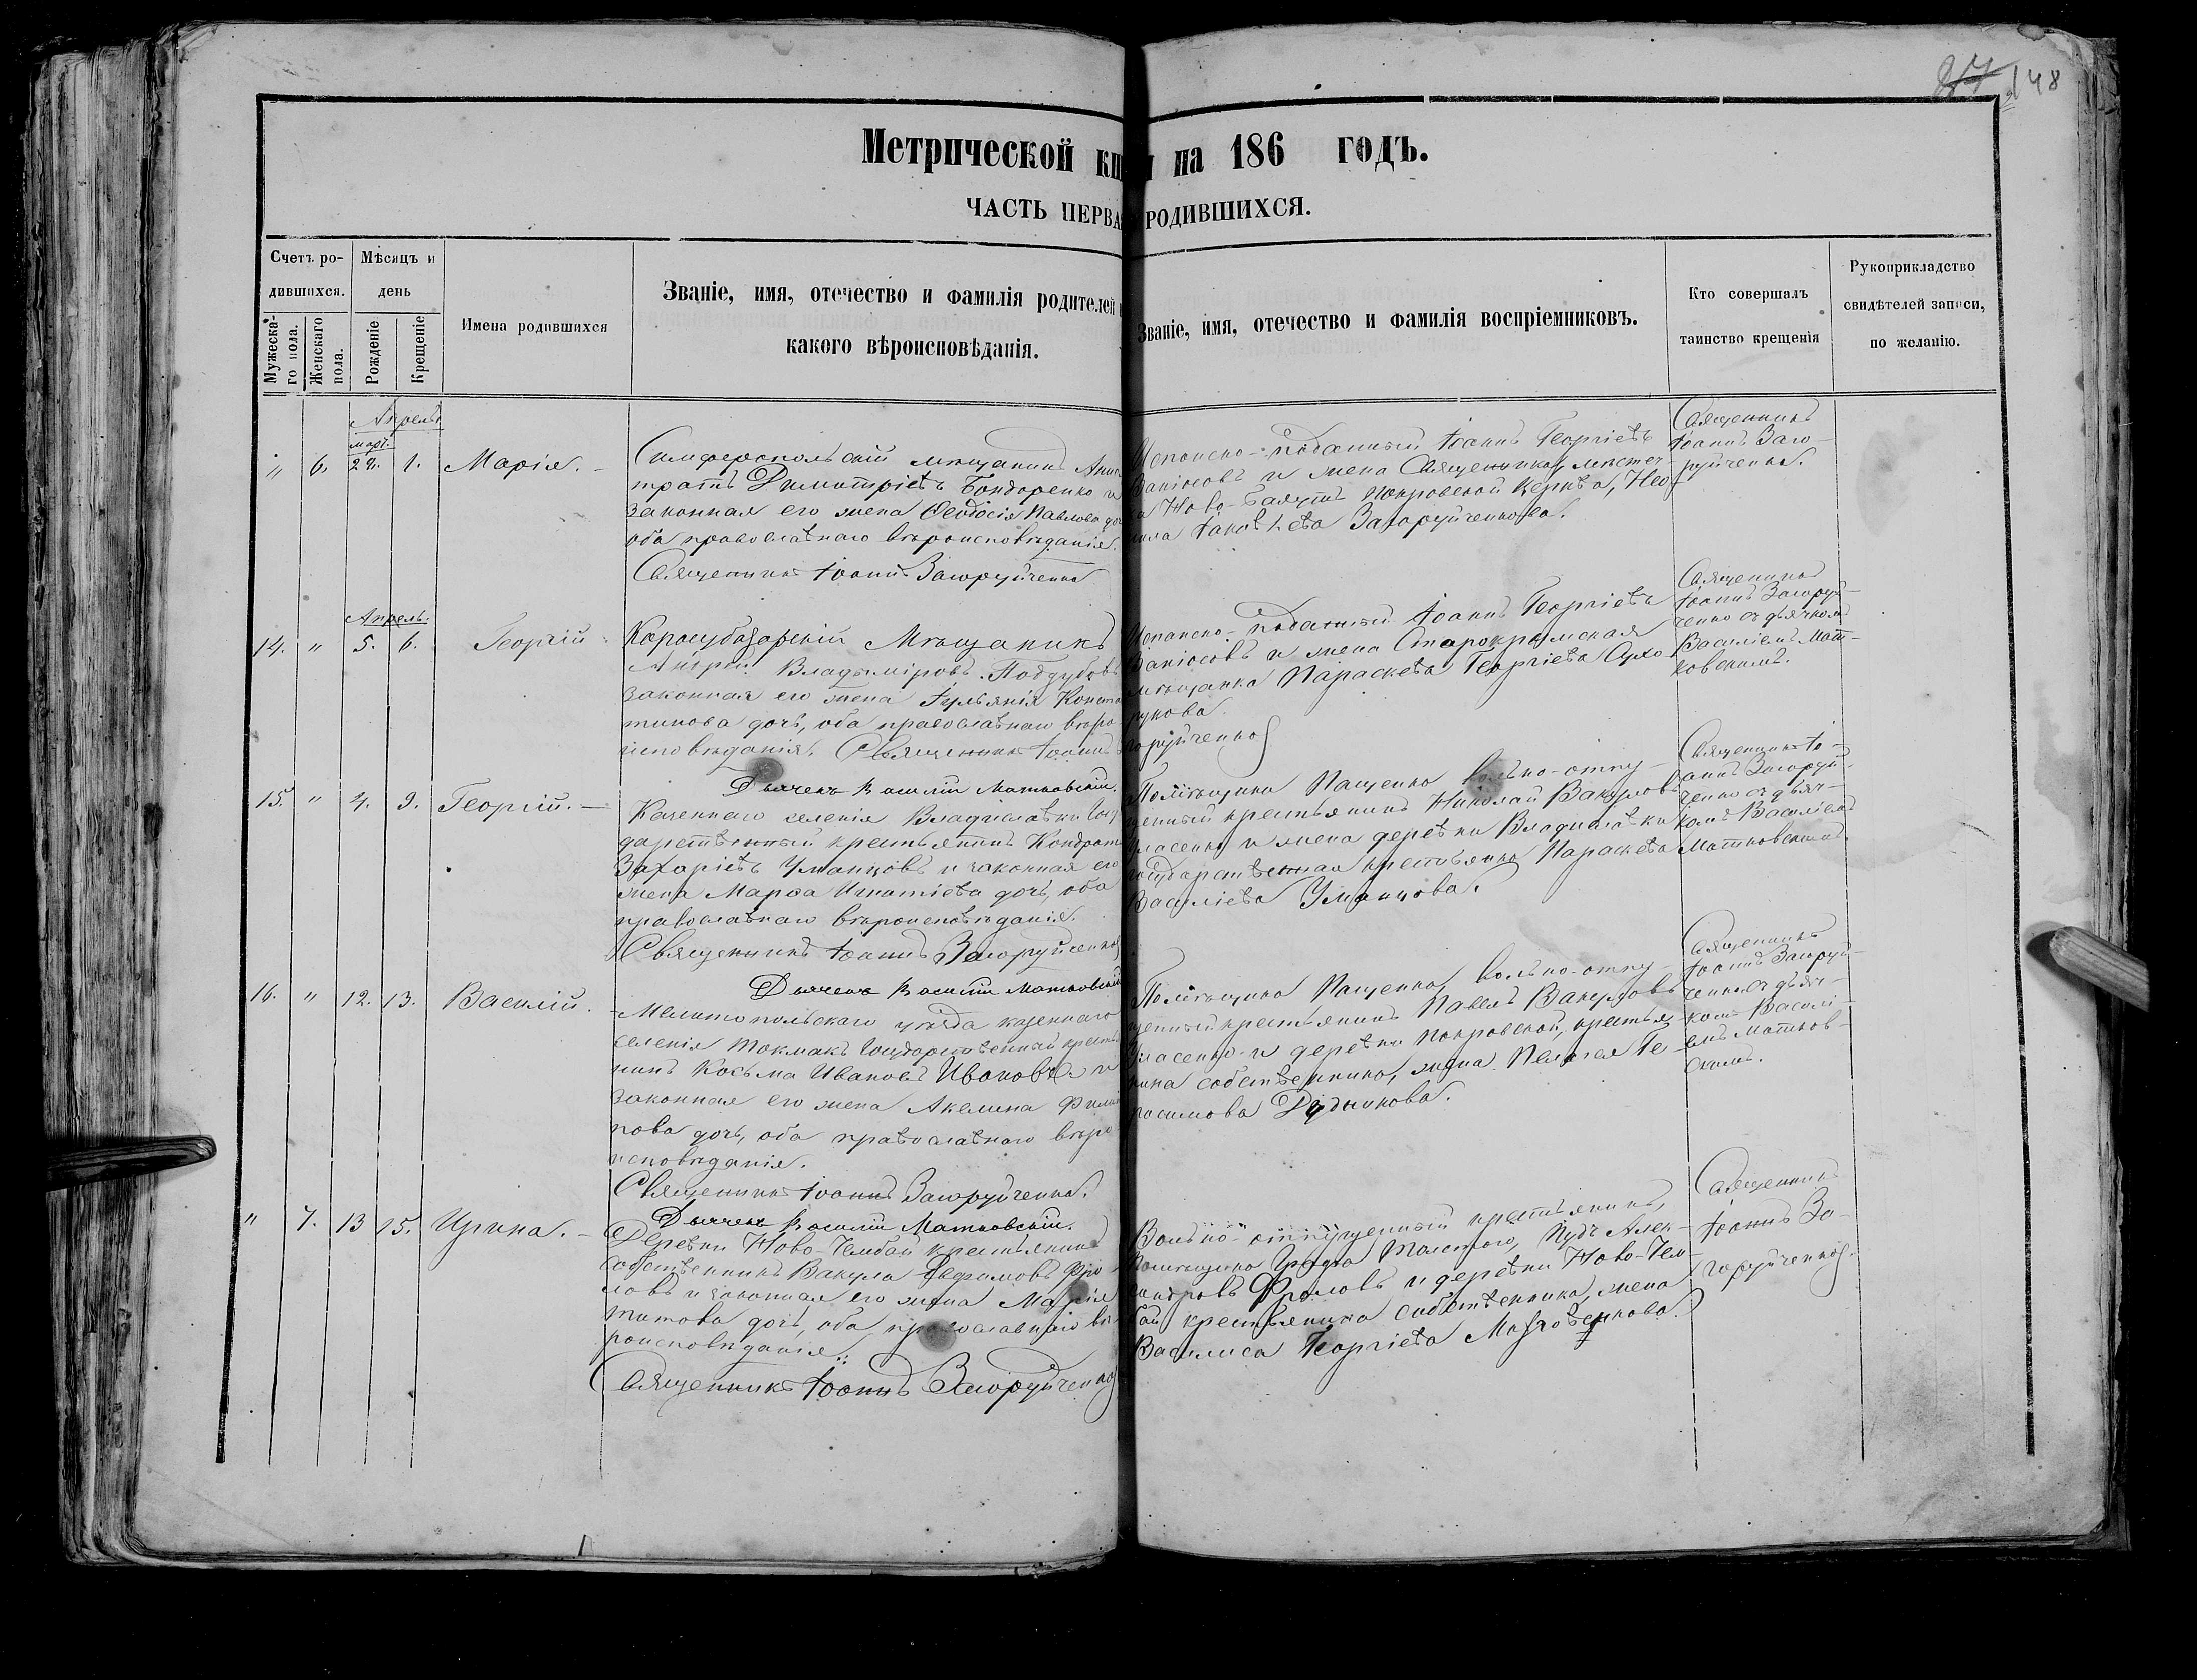 27 148
Метрической кн и на 186 годъ.
ЧАСТЬ ПЕРВА РОДИВШИХСЯ.
Счетъ ро-
дившихся.
Мужеска-
го пола.
Женскаго
пола.
Мѣсяцъ и
день
Рожденіе
Крещеніе
Имена родившихся
Званіе, имя, отечество и фамилія родителей и
какого вѣроисповѣданія.
Званіе, имя, отечество и фамилія воспріемниковъ.
Кто совершалъ
таинство крещенія
Рукоприкладство
свидѣтелей записи,
по желанію.
Апрель
март.
" 6. 24. 1. Марія. -
Симферопольскій мѣщанинъ
тратъ Димитріевъ Бондаренко и
законная его жена Ѳеодосія Павлова доч
оба православнаго вѣроисповѣданія.
Священникъ Іоаннъ Загоруйченко
подданный Іоаннъ Георгіевъ
и жена Священника, мѣстеч-
ка Ново- Покровской Церкви,
Іаковлева Загоруйченкова.
Священникъ
Іоаннъ Заго-
руйченко.
Апрель.
14. " 5. 6. Георгій
Карасубазарскій Мѣщанинъ
Андрей Владиміровъ Поддубовъ
законная его жена Іуліанія Конста
тинова дочь, оба православнаго вѣро-
исповѣданія. Священникъ Іоаннъ
подданный Іоаннъ Георгіевъ
и жена Старокрымская
мѣщанка Параскева Георгіева
рукова
горуйченко
Священникъ
Іоаннъ Загоруй-
ченко съ дьячкомъ
Василіемъ Мат-
ковскимъ.
Дьячекъ Василій Матковскій.
15. " 4. 9. Георгій. -
Казеннаго селенія Владиславки Госу
дарственный крестьянинъ Кондратъ
Захаріевъ Уманцовъ и законная его
жена Марѳа Игнатіева дочь, оба
православнаго вѣроисповѣданія.
Священникъ Іоаннъ Загоруйченко
Помѣщика Пащенко вольно-отпу-
щенный крестьянинъ Николай Вакуловъ
Уласенко и жена деревни Владиславки
государственная крестьянка Параскева
Василіева Уманцова.
Священникъ Іо-
аннъ Загоруй-
ченко съ дьяч-
комъ Василіемъ
Матковскимъ
Дьячекъ Василій Матковскій
16. " 12. 13. Василій.
Мелитопольскаго уѣзда казеннаго
селенія Токмакъ Государственный кресть
нинъ Косьма Ивановъ Ивановъ и
законная его жена Акелина Фили
пова дочь, оба православнаго вѣро
исповѣданія.
Священникъ Іоаннъ Загоруйченко.
Помѣщика Пащенко, вольно-отпу-
щенный крестьянинъ Павелъ Вакуловъ
Уласенко и деревни Покровской, крестья-
нина собственника, жена Пелагея Ге-
расимова Дудникова.
Священникъ
Іоаннъ Загоруй-
ченко съ дьяч-
комъ Васілі-
емъ Матков-
скимъ.
Дьячекъ Василій Матковскій.
" 7. 13 15. Ирина. -
Деревни Ново-Челебаи крестьянинъ
собственникъ Вакула Евфимовъ Фро
ловъ и законная его жена Марія
Титова дочь, оба православнаго вѣ-
роисповѣданія.
Священникъ Іоаннъ Загоруйченко
Вольно-отпущенный крестьянинъ,
помѣщика Графа Толстого, Алек-
сандровъ Фроловъ и деревни Ново-Чел-
баи крестьянина собственника, жена
Василиса Георгіева
Священникъ
Іоаннъ За-
горуйченко.